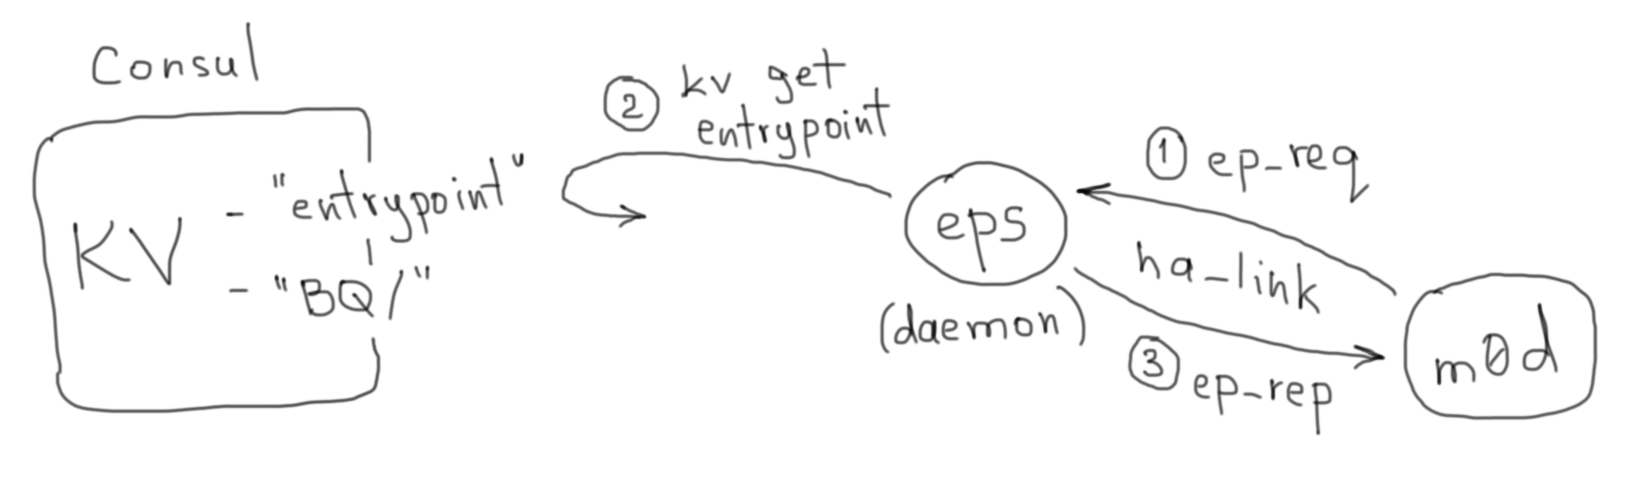 Consul
KV
- "entrypoint"
- "BQ/"
② kv get
entrypoint
eps
(daemon)
① ep_req
ha_link
③ ep_rep
m0d